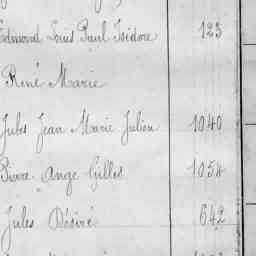 Edmond Louis Paul Isidore 125
René Marie
Jules Jean Marie Julien 1040
Pierre Ange Gilles 1054
Jules Désiré 642